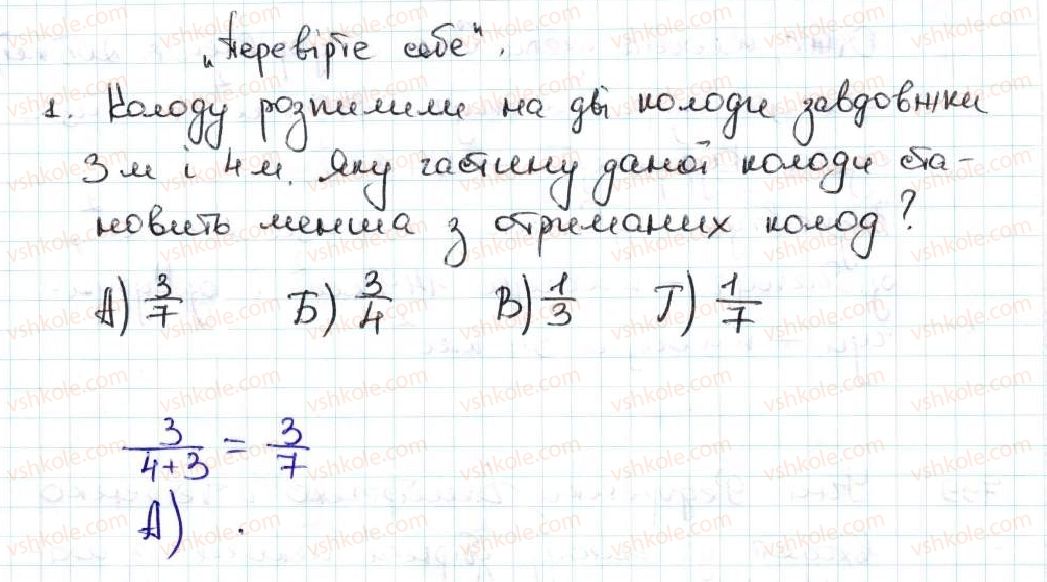 „Перевірте себе".
1. Колоду розпилили на дві колоди завдовжки
3 м і 4 м. Яку частину даної колоди ста-
новить менша з отриманих колод?
А) 3/7 Б) 3/4 В) 1/3 Г) 1/7
3/(4+3) = 3/7
А) .